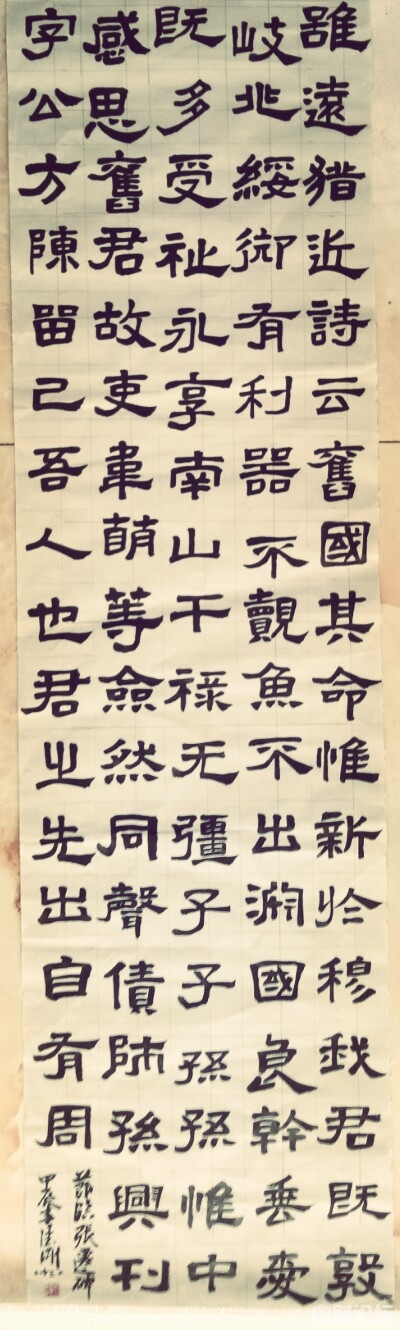 雖遠猶近詩云舊國其命惟新於穆我君既敦
岐北綏御有利器不覿魚不出渊國良幹垂愛
既多受祉永享南山干祿无疆子子孫孫惟中
感思舊君故吏韋萌等僉然同聲債師孫興刊
字公方陳留己吾人也君之先出自有周
節臨張遷碑
甲辰春